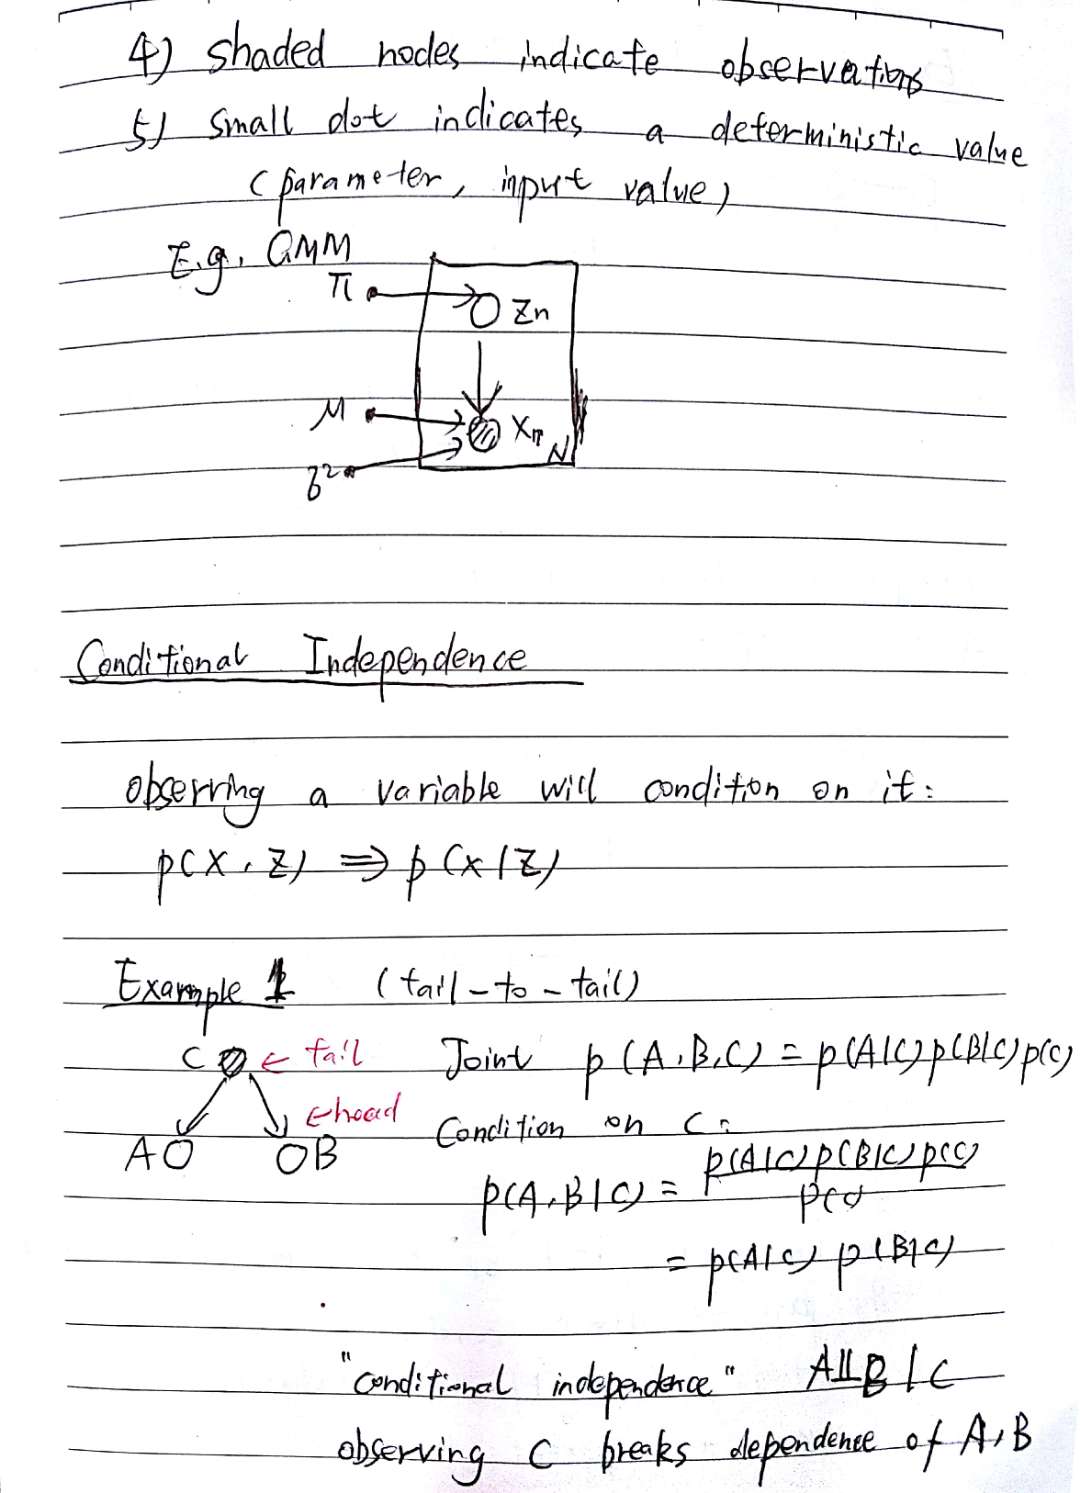 4) shaded nodes indicate observations
5) small dot indicates a deterministic value
(parameter, input value)
E.g, GMM
π
Zn
μ
Xn
N
σ²
Conditional Independence
observing a variable will condition on it:
p(X, Z) ⇒ p(X|Z)
Example 1 (tail-to-tail)
C ← tail Joint p(A,B,C) = p(A|C)p(B|C)p(C)
←head Condition on C:
A B
p(A,B|C) = p(A|C)p(B|C)p(C) / p(C)
= p(A|C) p(B|C)
"conditional independence" A⫫B | C
observing C breaks dependence of A,B